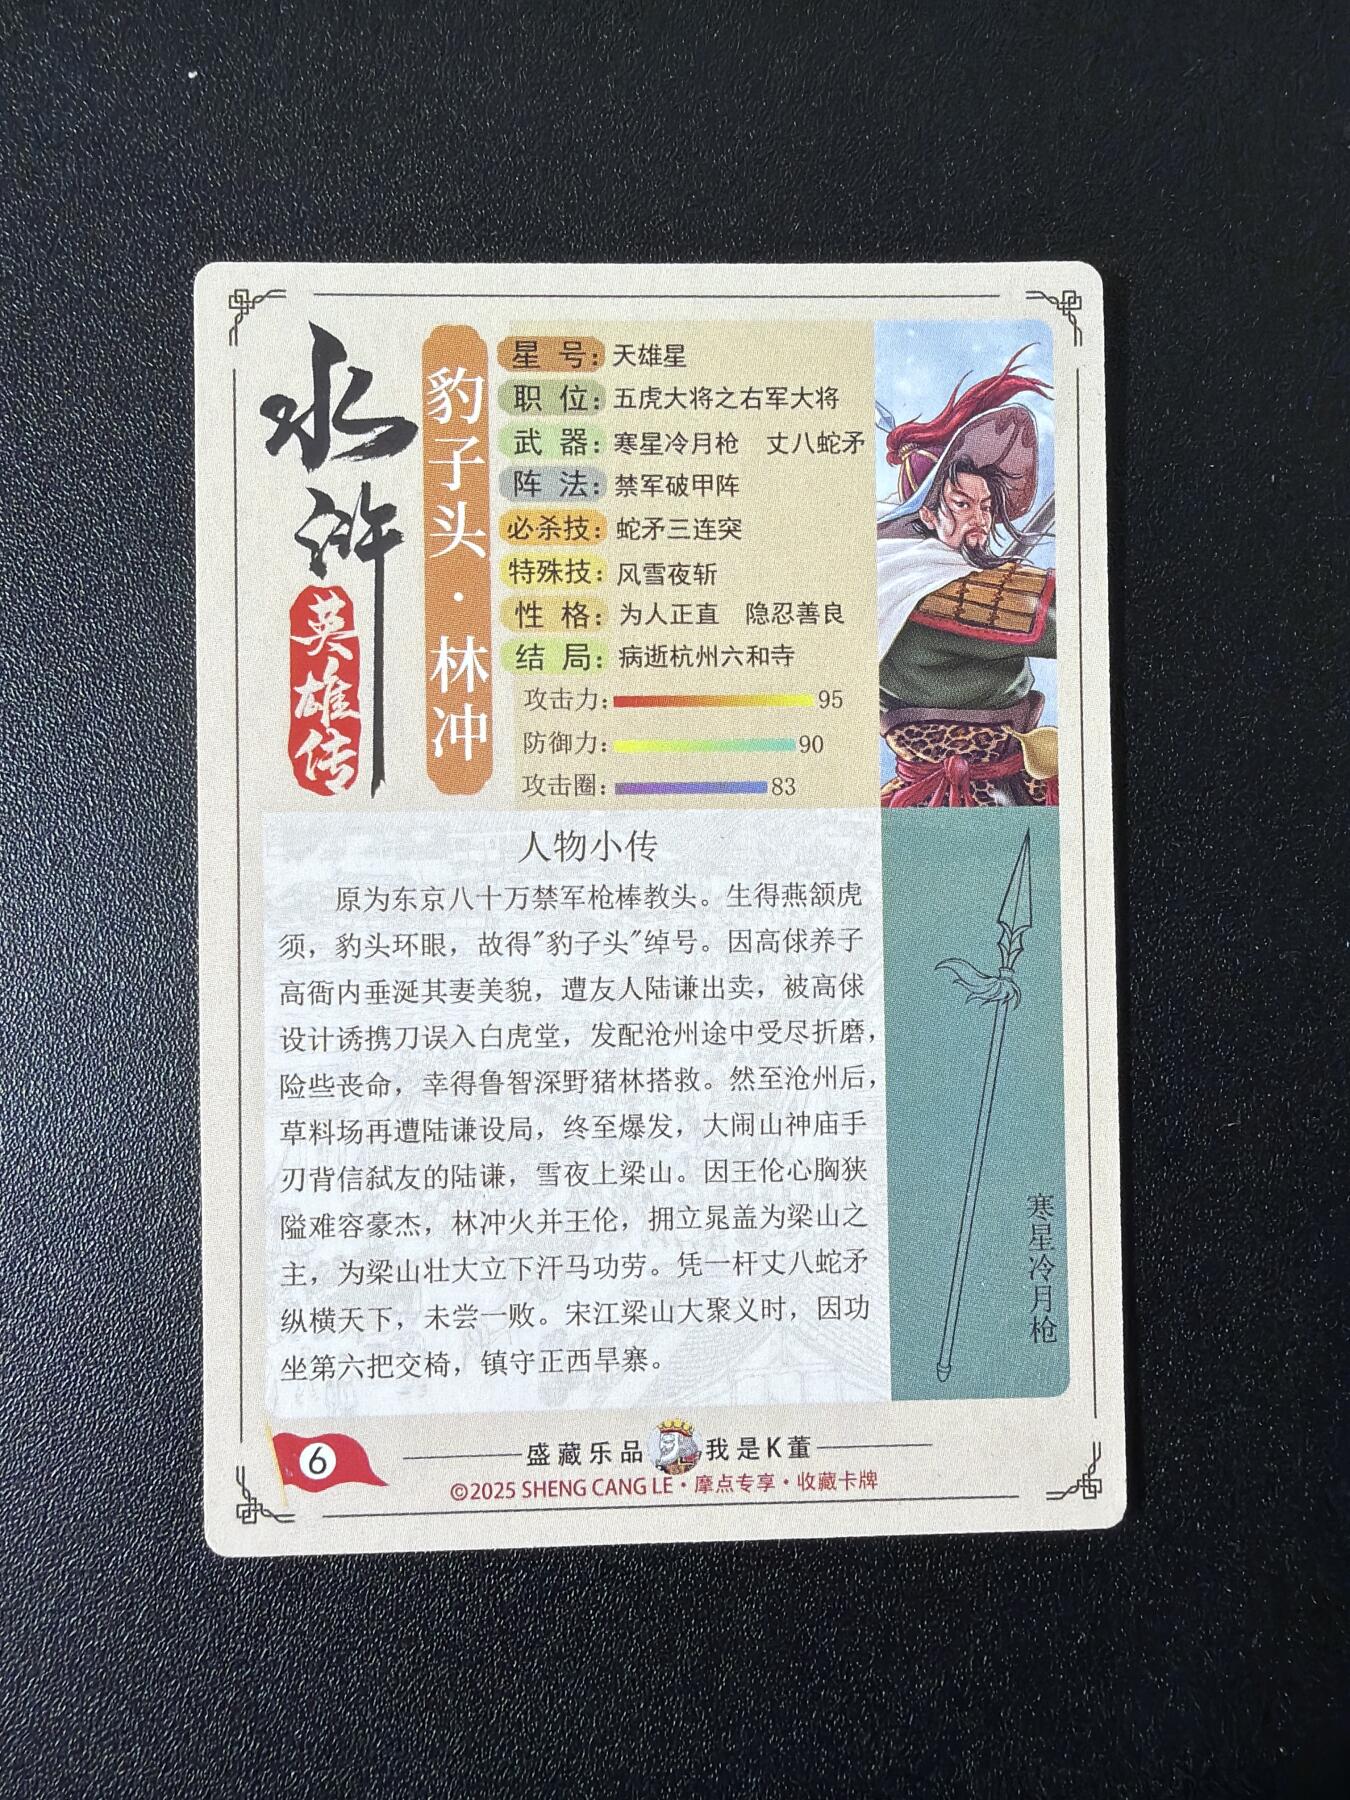 水浒
英雄传
豹子头·林冲
星 号：天雄星
职 位：五虎大将之右军大将
武 器：寒星冷月枪 丈八蛇矛
阵 法：禁军破甲阵
必杀技：蛇矛三连突
特殊技：风雪夜斩
性 格：为人正直 隐忍善良
结 局：病逝杭州六和寺
攻击力：95
防御力：90
攻击圈：83
人物小传
原为东京八十万禁军枪棒教头。生得燕颔虎
须，豹头环眼，故得"豹子头"绰号。因高俅养子
高衙内垂涎其妻美貌，遭友人陆谦出卖，被高俅
设计诱携刀误入白虎堂，发配沧州途中受尽折磨，
险些丧命，幸得鲁智深野猪林搭救。然至沧州后，
草料场再遭陆谦设局，终至爆发，大闹山神庙手
刃背信弑友的陆谦，雪夜上梁山。因王伦心胸狭
隘难容豪杰，林冲火并王伦，拥立晁盖为梁山之
主，为梁山壮大立下汗马功劳。凭一杆丈八蛇矛
纵横天下，未尝一败。宋江梁山大聚义时，因功
坐第六把交椅，镇守正西旱寨。
寒星冷月枪
6
盛藏乐品 我是K董
©2025 SHENG CANG LE·摩点专享·收藏卡牌